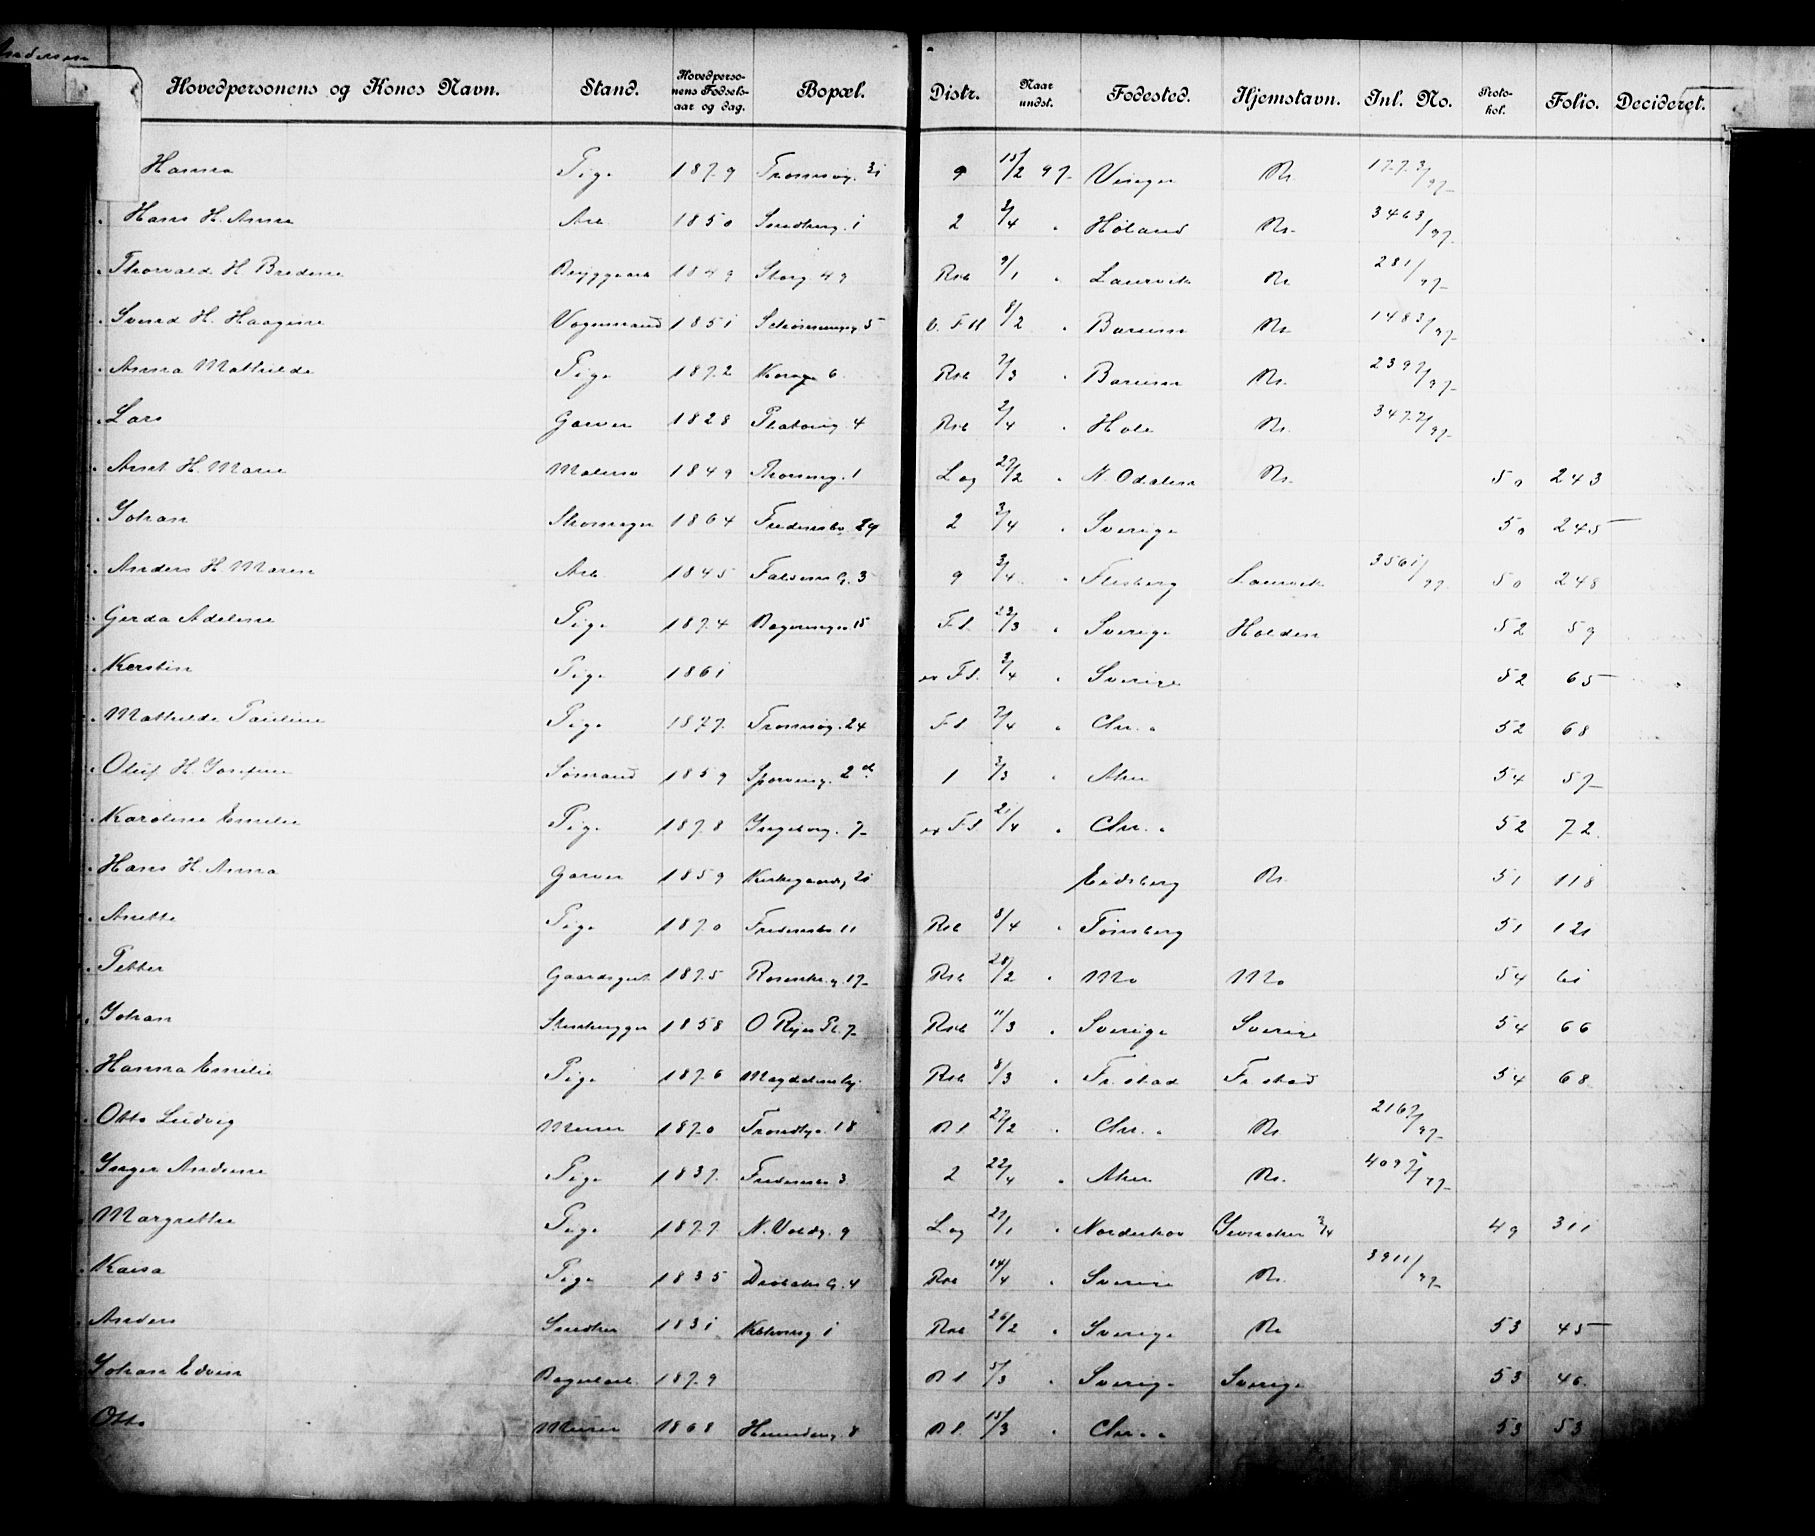 Andersen
Hovedpersonens og Kones Navn. Stand. Hovedpersonens Fødselsaar og dag. Bopæl. Distr. Naar undst. Fødested. Hjemstavn. Inl. No. Protokol. Folio. Decideret.
Hanna Pige 1879 Tromsøg. 31 9 15/2 97 Vinger Kr. 1773/97
Hans H. Anna Arb 1850 Smedberg. 1 2 2/4 " Høland Kr. 3463/97
Thorvald H Bredine Bryggearb 1849 Storg 49 Rst 9/1 " Laurvik Kr 281/97
Svend H. Haagine Vognmand 1851 Schønningsg. 5 8/2 " Bærum Kr. 1483/97
Anna Mathilde Pige 1872 6 Rst 7/3 " Bærum Kr. 2397/97
Lars Garver 1828 Platoug. 4 Rst 2/4 " Hole Kr. 3477/97
Anst H. Marie Malersv 1849 Thorsing. 1 Lag 27/2 " N Odalen Kr. 50 243
Johan Skomager 1864 Fredensbo. 29 2 3/4 " Sverige 50 245
Anders H. Maren Arb. 1845 Falsens G. 3 9 3/4 " Flesberg Laurvik 3561/97 50 248
Gerda Adeline Pige 1874 15 Fl. 22/3 " Sverige Halden 52 59
Kerstin Pige 1861 Fl. 3/4 " Sverige 52 65
Mathilde Pauline Pige 1877 Tromsøg. 24 Fl 7/4 " Chr. " 52 68
Oluf H. Josefine Sømand 1859 Sporveisg. 2 1 3/3 " Aker 54 57
Karoline Emilie Pige 1878 Ingeborg. 7 Fl 21/4 " Chr. " 52 72.
Hans H. Anna Garver 1859 Kirkegaardg 21 Eidsberg Kr. 51 118
Anette Pige 1870 Fredensbo 11 Rst 8/4 " Tønsberg 51 121
Petter Gaardsgut 1875 Rosenkr. g. 17 Rst 28/2 " Mo Mo 54 61
Johan Stenhugger 1858 O Ryes Pl. 7 Rst 11/3 " Sverige Sverige 54 66
Hanna Emilie Pige 1876 Rst 8/3 " Fr. stad Fr stad 54 68
Otto Ludvig Murer 1870 Trondhj. 18 27/2 " Chr. " Kr 2167/97
Inger Andrine Pige 1837 Fredensbo 3 2 22/4 " Aker Kr. 4097/97
Margrethe Pige 1877 N. Voldg. 9 Lag 27/1 " Norderhov Jevnaker 3/4 49 311
Kaisa Pige 1835 Drøbaks G. 4 Rst 14/4 " Sverige Kr. 3911/97
Anders Snedker 1831 1 Rst 26/2 " Sverige Kr 53 45
Johan Edvin 1879 5/3 " Sverige Sverige 53 46.
Otto Murer 1868 8 15/3 " Chr. " 53 53